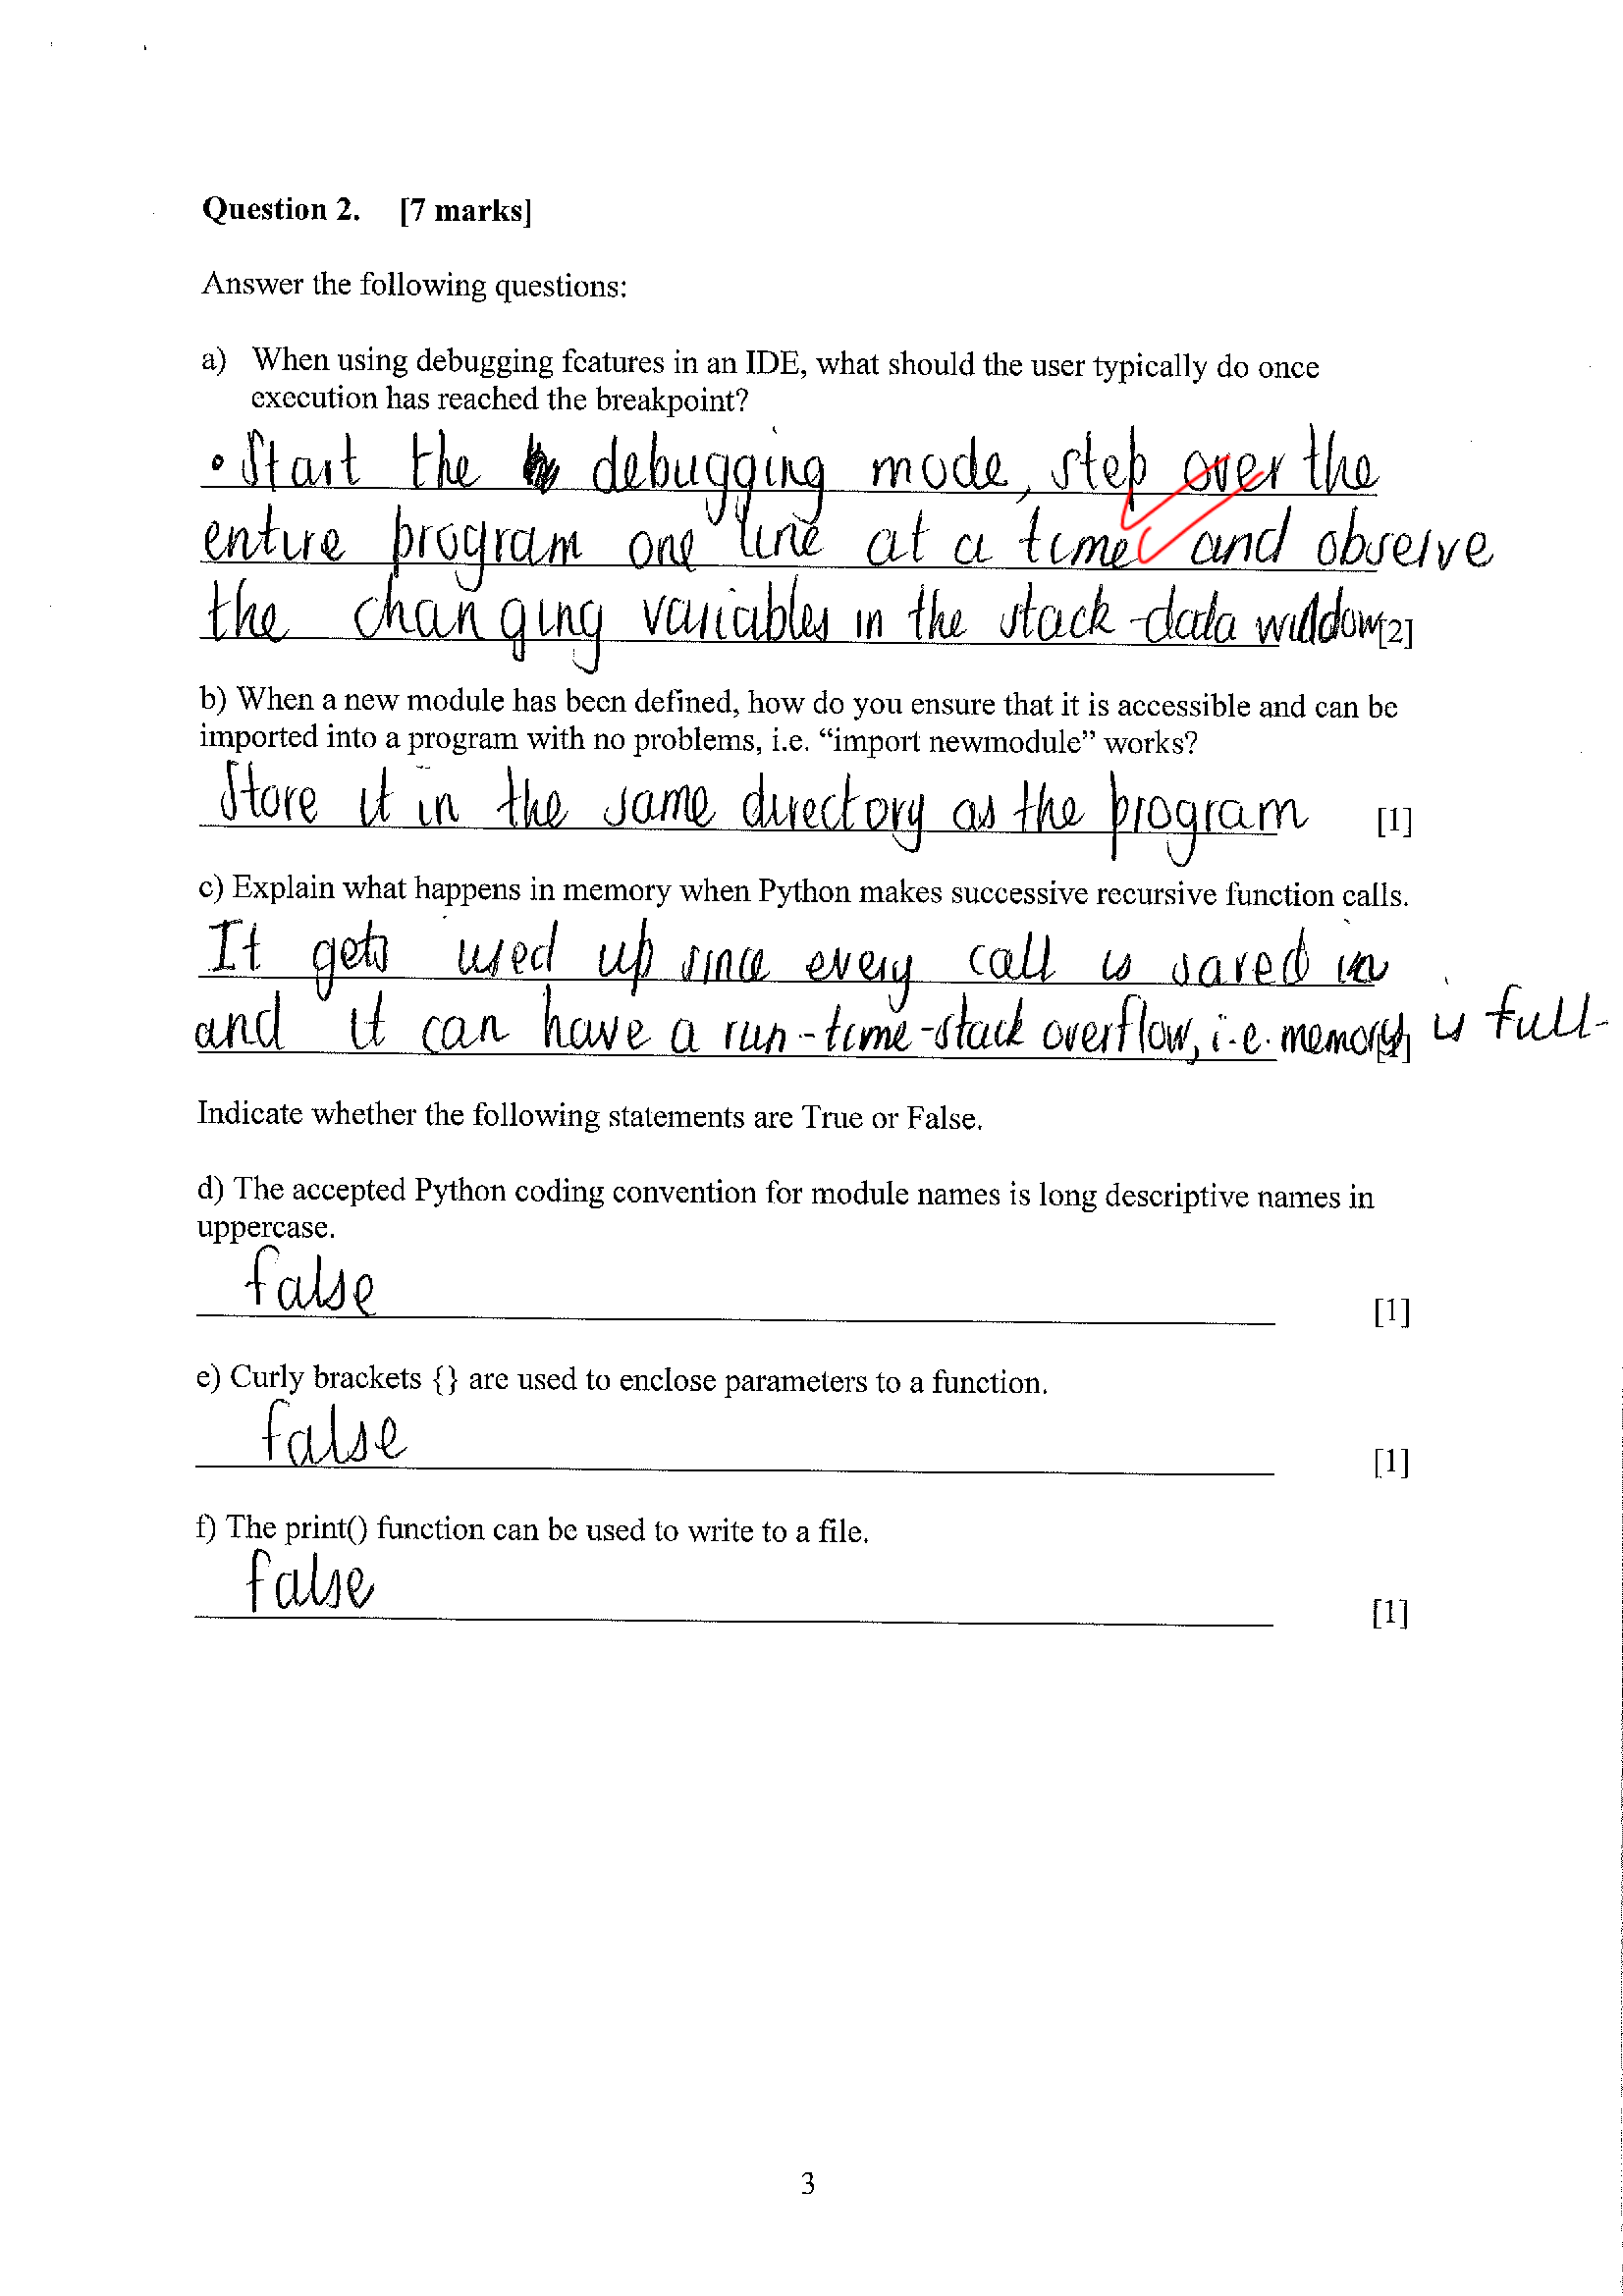 Question 2. [7 marks]
Answer the following questions:
a) When using debugging features in an IDE, what should the user typically do once
execution has reached the breakpoint?
• Start the debugging mode, step over the
entire program one line at a time and observe
the changing variables in the stack-data window [2]
b) When a new module has been defined, how do you ensure that it is accessible and can be
imported into a program with no problems, i.e. “import newmodule” works?
Store it in the same directory as the program [1]
c) Explain what happens in memory when Python makes successive recursive function calls.
It gets used up since every call is saved in
and it can have a run-time-stack overflow, i.e. memory is full.
Indicate whether the following statements are True or False.
d) The accepted Python coding convention for module names is long descriptive names in
uppercase.
false [1]
e) Curly brackets {} are used to enclose parameters to a function.
false [1]
f) The print() function can be used to write to a file.
false [1]
3